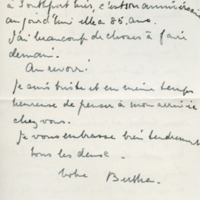 à Southport hier, c'est son anniversaire
aujourd'hui elle a 85 ans.
J'ai beaucoup de choses à faire
demain.
Au revoir.
Je suis triste et en même temps
heureuse de penser à mon arrivée
chez vous.
Je vous embrasse bien tendrement
tous les deux.
Votre Bertha.